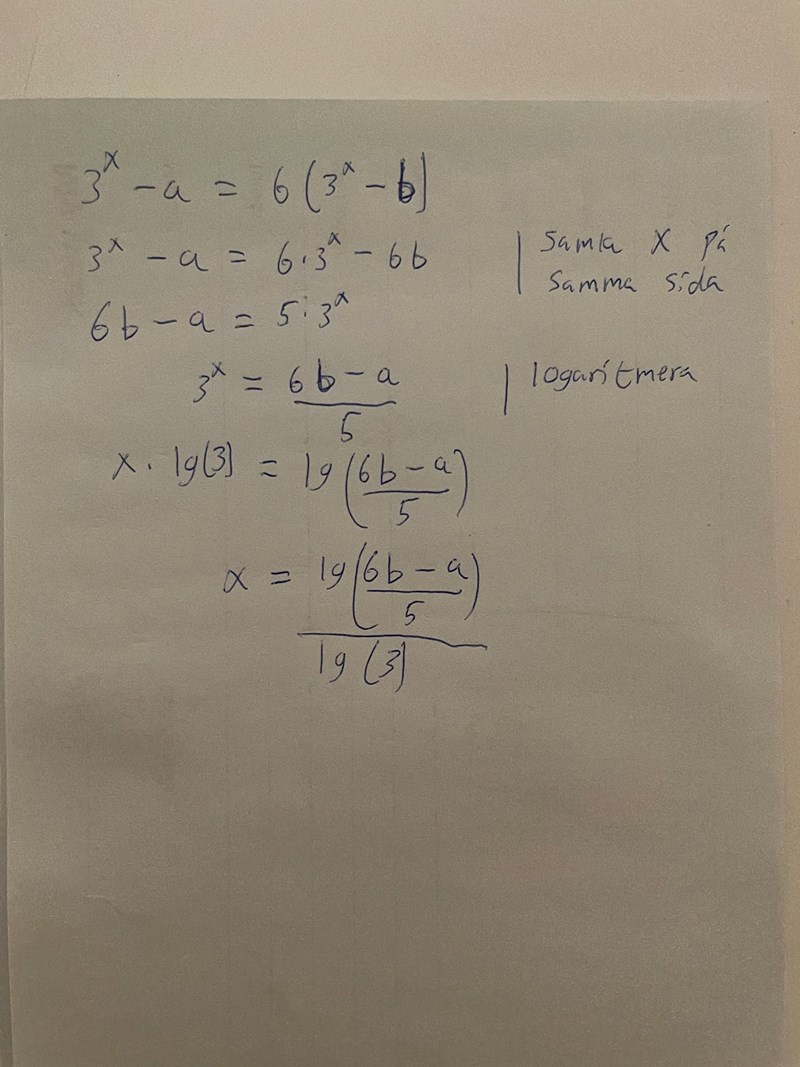 3^x - a = 6(3^x - b)
3^x - a = 6·3^x - 6b | Samla X på
Samma sida
6b - a = 5·3^x
3^x = (6b - a)/5 | logaritmera
x · lg(3) = lg((6b - a)/5)
x = lg((6b - a)/5)/lg(3)